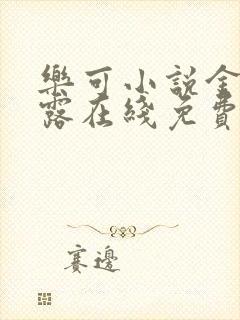 樂可小說金
露在綫免費
賽邊